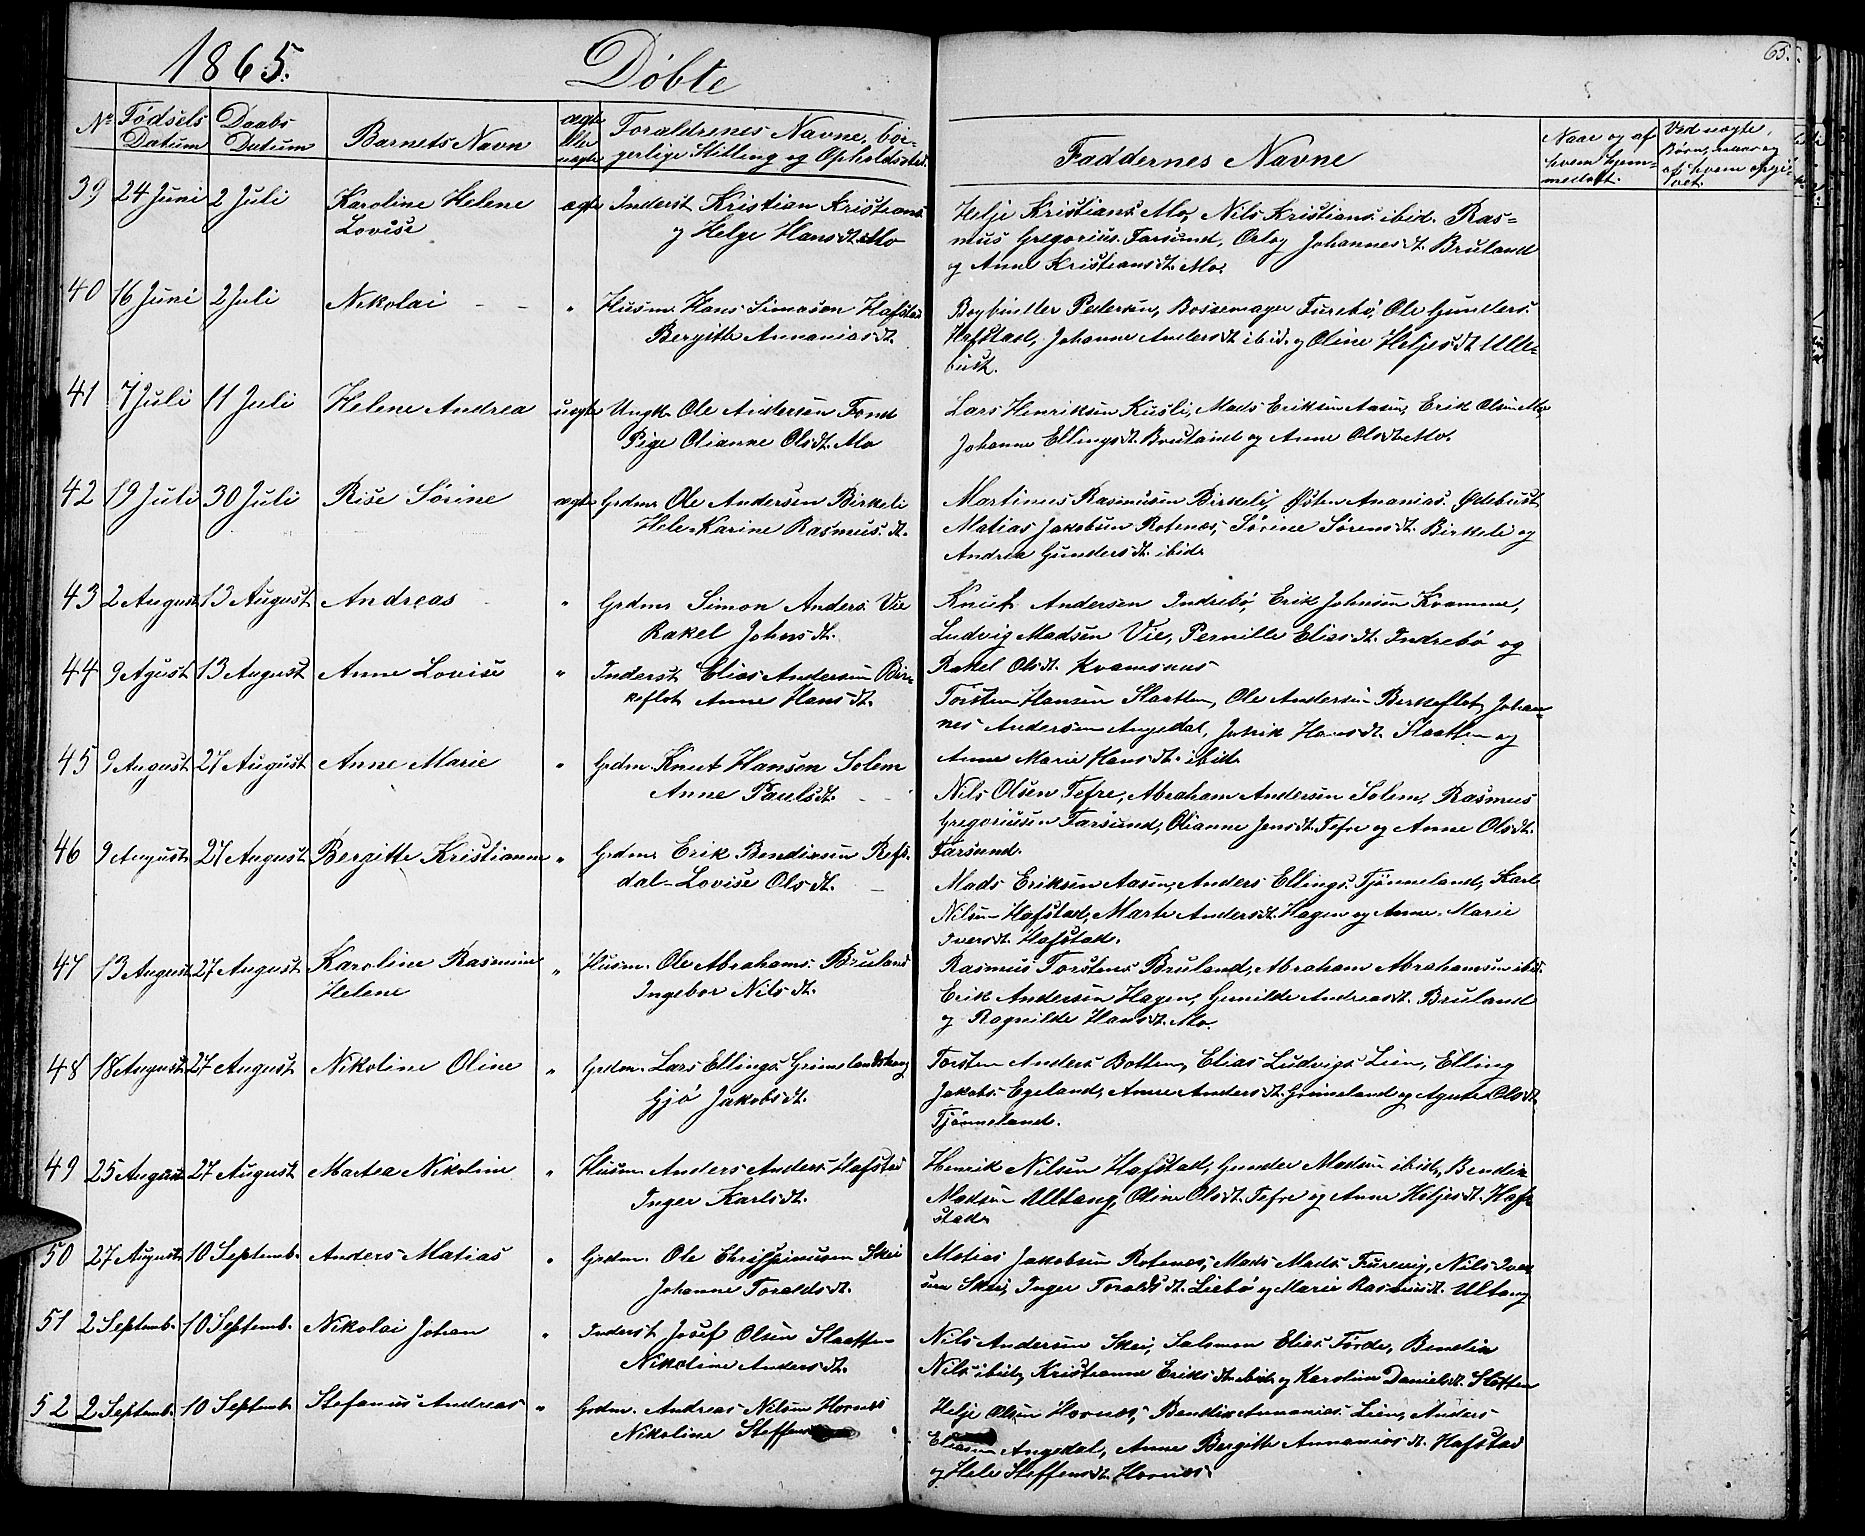 1865. Døbte
65.
No Fødsels Datum Daabs Datum Barnets Navn ægte eller uægte Forældrenes Navne, bor-
gerlige Stilling og Opholdssted. Faddernes Navne Naar og af hvem hjem-
medøbt. Ved uægte Børn, naar og af hvem opgi-
vet.
39 24 Juni 2 Juli Karoline Helene
Lovise
ægte Inderst Kristian Kristians.
og Helge Hansdt. Mo
Helje Kristians. Mo, Nils Kristians. ibid. Ras-
mus Gregorius. Farsund, Johannesdt. Bruland
og Anne Kristiansdt. Mo.
40 16 Juni 2 Juli Nikolai - -
" Husm. Hans Simonsen Hafstad
Bergitte Annaniasdt.
Bogbinder Pedersen, Bossemager Furebø, Ole Gunders.
Hafstad, Johanne Andersdt. ibid. og Oline Heljesdt. Ulle-
bust.
41 7 Juli 11 Juli Helene Andrea
uægte Ungk. Ole Andersen Fond
Pige Olianne Olsdt. Mo
Lars Henriksen Kusli, Mads Eriksen Aasen, Erik Olsen Mo,
Johanne Ellingsdt. Bruland og Anne Olsdt. Mo.
42 19 Juli 30 Juli Rise Sørine
ægte Grdm. Ole Andersen Birkeli
Hele Karine Rasmus. dt.
Martinus Rasmusen Birkeli, Østen Ananias. Ødebust
Matias Jakobsen Rotenæs, Sørine Sørensdt. Birkeli og
Andrea Gundersdt. ibid.
43 2 August 13 August Andreas
" Grdm. Simon Anders. Vie
Rakel Johnsdt.
Knut Andersen Indrebø, Erik Johnsen Kvamme,
Ludvig Madsen Vie, Pernille Eliasdt. Indrebø og
Rakel Olsdt. Kvamsnæs
44 9 Agust 13 August Anne Lovise
" Inderst Elias Andersen Bir-
keflot Anne Hansdt.
Torsten Hansen Slaatten, Ole Andersen Berkeflot, Johan-
nes Andersen Angedal, Hansdt. Slaatten og
Anne Marie Hansdt. ibid.
45 9 August 27 August Anne Marie
" Grdm. Knut Hansen Solem
Anne Paulsdt. -
Nils Olsen Tefre, Abraham Andersen Solem, Rasmus
Gregoriusen Farsund, Olianne Jensdt. Tefre og Anne Olsdt.
Farsund.
46 9 August 27 August Bergitte Kristianne
" Grdm. Erik Bendixsen Refs-
dal - Lovise Olsdt. -
Mads Eriksen Aasen, Anders Ellings. Tjønneland, Karl
Nilsen Hafstad, Marte Andersdt. Hagen og Anne Marie
Iversdt. Hafstad.
47 13 August 27 August Karoline Rasmine
Helene
" Husm. Ole Abrahams. Bruland
Ingebor Nilsdt.
Rasmus Torstens. Bruland, Abraham Abrahamsen ibid.
Erik Andersen Hagen, Gunilde Andreasdt. Bruland
og Ragnilde Hansdt. Mo.
48 18 August 27 August Nikoline Oline
" Grdm. Lars Ellings. Grimelandshaug
Gjø Jakobsdt.
Torsten Anders. Botten, Elias Ludvigs. Lien, Elling
Jakobs. Egeland, Anne Andersdt. Grimeland og Agnete Olsdt.
Tjønneland.
49 25 August 27 August Martea Nikoline
" Husm. Anders Anders. Hafstad
Inger Karlsdt.
Henrik Nilsen Hafstad, Gunder Madsen ibid., Bendix
Madsen Ultang, Oline Olsdt. Tefre og Anne Heljesdt. Haf-
stad.
50 27 August 10 Septemb. Anders Matias
" Grdm. Ole Skei
Johanne Toraldsdt.
Matias Jakobsen Rotenæs, Mads Mads. Furevig, Nils Iver-
sen Skei, Inger Toraldsdt. Liebø og Marie Rasmusdt. Ultang
51 2 Septemb. 10 Septemb. Nikolai Johan
" Inderst Josef Olsen Slaatten
Nikoline Andersdt.
Nils Andersen Skei, Salomon Elias. Førde, Bendix
Nils. ibid., Kristianne Eriksdt. ibid. og Karoline Danielsdt. Slotten
52 2 Septemb. 10 Septemb. Stefanus Andreas
" Grdm. Andreas Nilsen Hornes
Nikoline Steffens
Helje Olsen Hornes, Bendix Annanias. Lien, Anders
Eliasen Angedal, Anne Bergitte Annaniasdt. Hafstad
og Hele Steffensdt. Hornes.